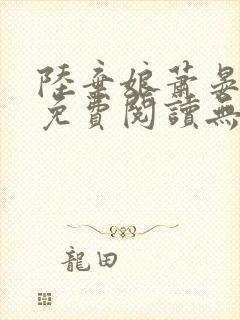 陸棄娘蕭晏
免費閱讀無
龍田